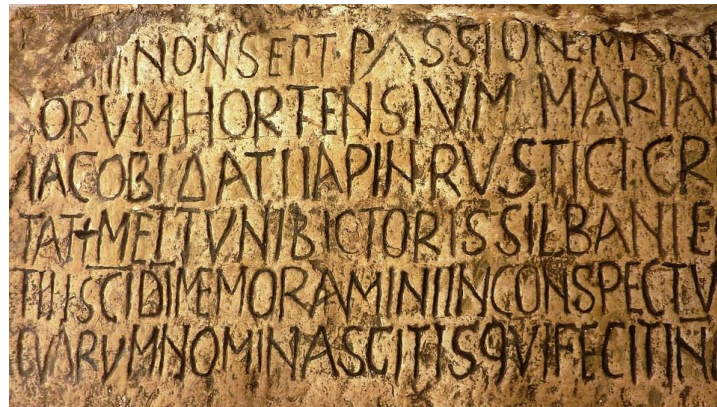 III NON SEPT · PASSIONE MART
ORVM HORTENSIVM MARIAN
IACOBI DATI IAPIN RVSTICI CR
TAT+ METTVNI BICTORIS SILBANI E
TII SCI DI MEMORAMINI IN CONSPECTV
QVARVM NOMINA SCITIS QVI FECIT IN